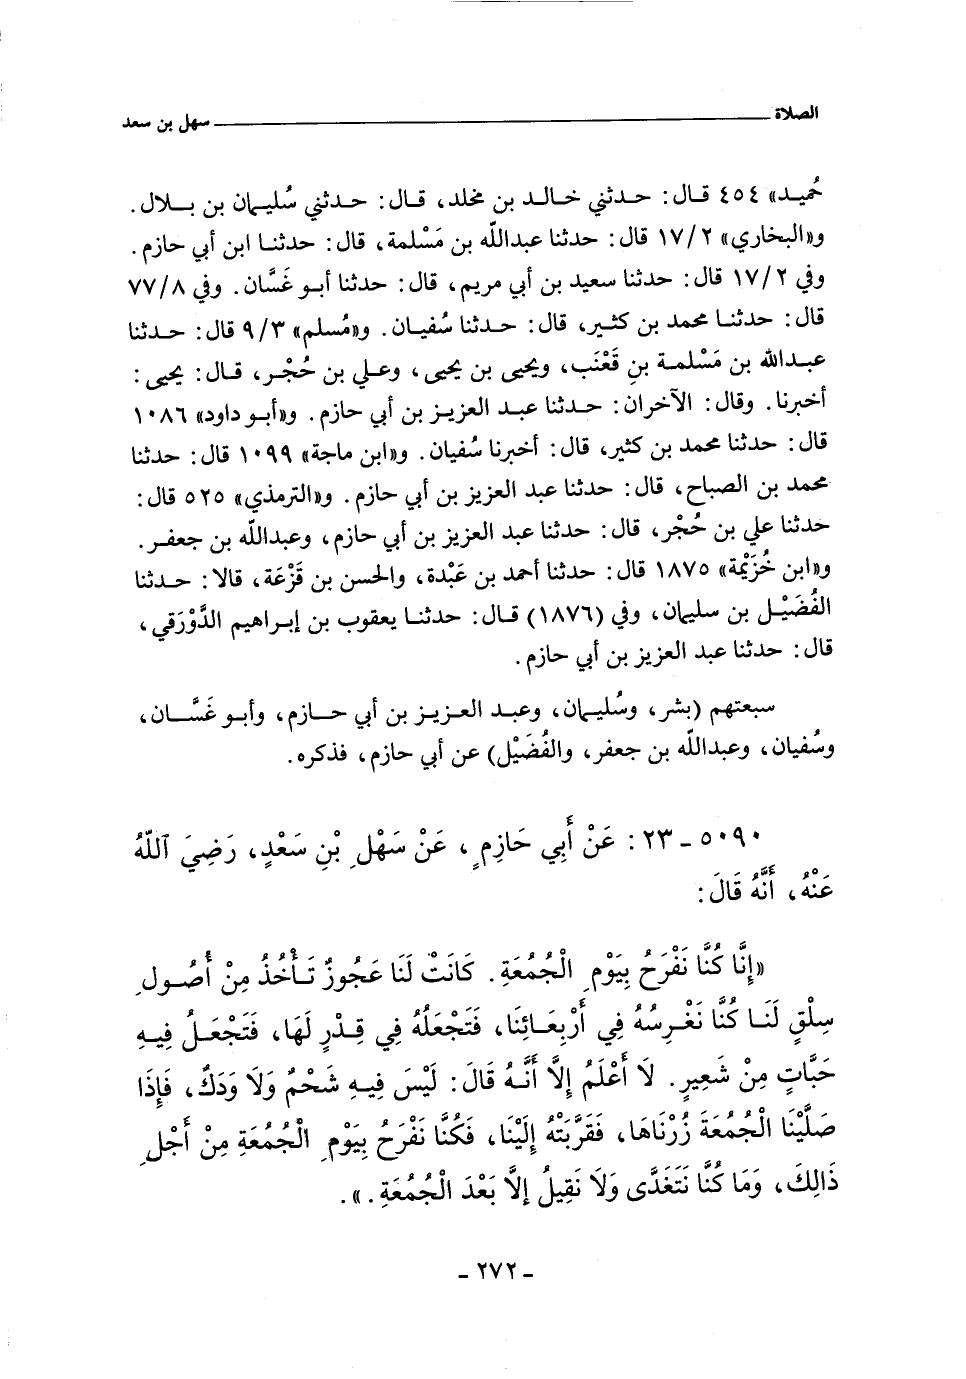 الصلاة سهل بن سعد
حُميد» ٤٥٤ قال: حدثني خالد بن مخلد، قال: حدثني سُليمان بن بلال.
و«البخاري» ١٧/٢ قال: حدثنا عبدالله بن مَسْلمة، قال: حدثنا ابن أبي حازم.
وفي ١٧/٢ قال: حدثنا سعيد بن أبي مريم، قال: حدثنا أبو غَسَّان. وفي ٧٧/٨
قال: حدثنا محمد بن كثير، قال: حدثنا سُفيان. و«مُسلم» ٩/٣ قال: حدثنا
عبدالله بن مَسْلمة بنِ قَعْنَب، ويحيى بن يحيى، وعلي بن حُجْر، قال: يحيى:
أخبرنا. وقال: الآخران: حدثنا عبد العزيز بن أبي حازم. و«أبو داود» ١٠٨٦
قال: حدثنا محمد بن كثير، قال: أخبرنا سُفيان. و«ابن ماجة» ١٠٩٩ قال: حدثنا
محمد بن الصباح، قال: حدثنا عبد العزيز بن أبي حازم. و«الترمذي» ٥٢٥ قال:
حدثنا علي بن حُجْر، قال: حدثنا عبد العزيز بن أبي حازم، وعبدالله بن جعفر.
و«ابن خُزَيْمة» ١٨٧٥ قال: حدثنا أحمد بن عَبْدة، والحسن بن قَزْعَة، قالا: حدثنا
الفُضَيْل بن سليمان، وفي (١٨٧٦) قال: حدثنا يعقوب بن إبراهيم الدَّوْرَقي،
قال: حدثنا عبد العزيز بن أبي حازم.
سبعتهم (بشر، وسُليمان، وعبد العزيز بن أبي حازم، وأبو غَسَّان،
وسُفيان، وعبدالله بن جعفر، والفُضَيْل) عن أبي حازم، فذكره.
٥٠٩٠ ـ ٢٣: عَنْ أَبِي حَازِمٍ، عَنْ سَهْلِ بْنِ سَعْدٍ، رَضِيَ ٱللَّهُ
عَنْهُ، أَنَّهُ قَالَ:
«إِنَّا كُنَّا نَفْرَحُ بِيَوْمِ الْجُمُعَةِ. كَانَتْ لَنَا عَجُوزٌ تَأْخُذُ مِنْ أُصُولِ
سِلْقٍ لَنَا كُنَّا نَغْرِسُهُ فِي أَرْبِعَائِنَا، فَتَجْعَلُهُ فِي قِدْرٍ لَهَا، فَتَجْعَلُ فِيهِ
حَبَّاتٍ مِنْ شَعِيرٍ. لاَ أَعْلَمُ إِلاَّ أَنَّهُ قَالَ: لَيْسَ فِيهِ شَحْمٌ وَلاَ وَدَكٌ، فَإِذَا
صَلَّيْنَا الْجُمُعَةَ زُرْنَاهَا، فَقَرَّبَتْهُ إِلَيْنَا، فَكُنَّا نَفْرَحُ بِيَوْمِ الْجُمُعَةِ مِنْ أَجْلِ
ذَالِكَ، وَمَا كُنَّا نَتَغَدَّى وَلاَ نَقِيلُ إِلاَّ بَعْدَ الْجُمُعَةِ.».
ـ ٢٧٢ ـ